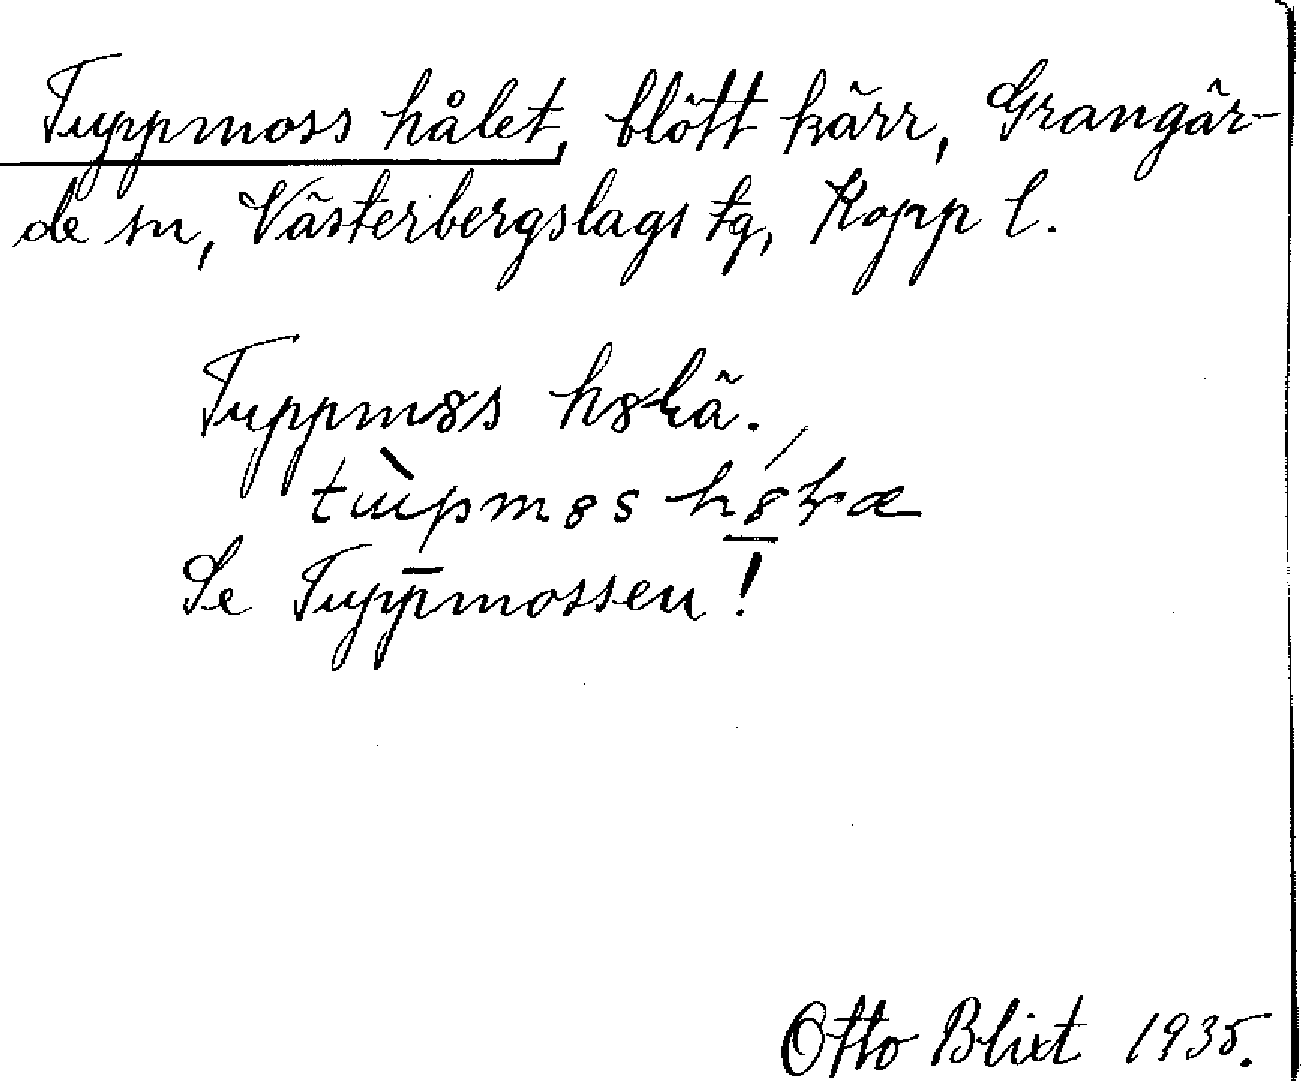 Tuppmoss hålet, blött kärr, Grangär-
de sn, Västerbergslags tg, Kopp l.
Tuppm8s
Se Tuppmossen!
Otto Blixt 1935.